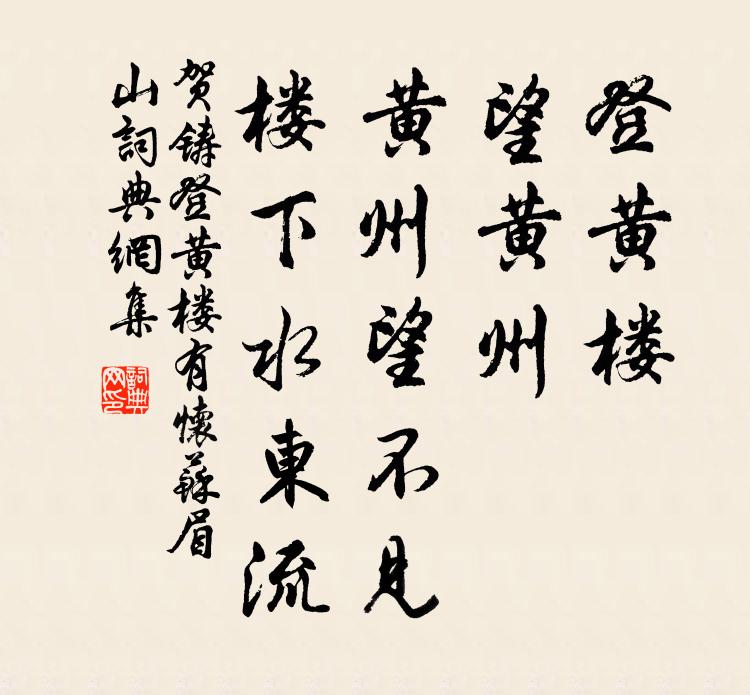 登黄楼
望黄州
黄州望不见
楼下水東流
贺鑄登黄楼有懷蘇眉
山詞典網集
詞典
网印